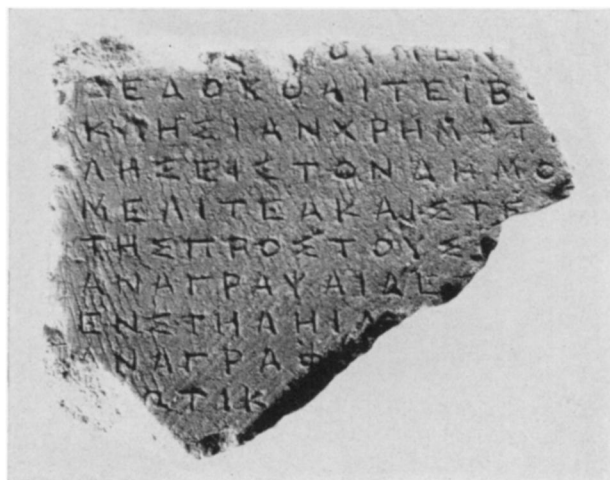 ΟΥΜΕΝ
ΔΕΔΟΧΘΑΙΤΕΙΒ
ΚΛΗΣΙΑΝΧΡΗΜΑΤ
ΛΗΣΕΙΣΤΟΝΔΗΜΟ
ΜΕΛΙΤΕΑΚΑΙΣΤΕ
ΤΗΣΠΡΟΣΤΟΥΣ
ΑΝΑΓΡΑΨΑΙΔΕ
ΕΝΣΤΗΛΗΙΛ
ΑΝΑΓΡΑΦ
ΩΤΙΚ